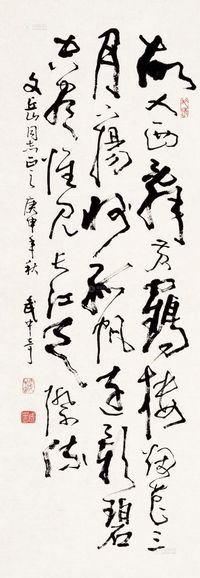 故人西辭黄鶴楼烟花三
月下揚州孤帆遠影碧
空盡惟見長江天際流
文岳同志正之 庚申年秋 武中奇